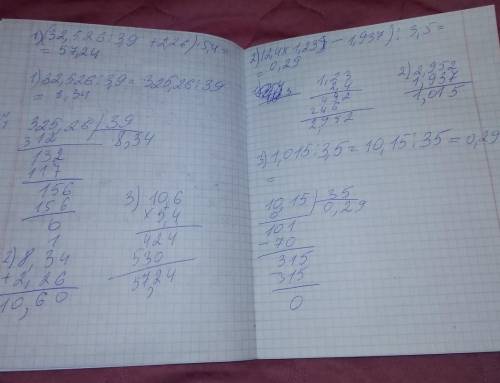 1) (32,526 : 3,9 + 2,26) · 5,4 =
= 57,24
1) 32,526 : 3,9 = 325,26 : 39
= 8,34
325,26 | 39
312 8,34
132
117
156
156
0
1
2) 8,34
+ 2,26
10,60
3) 10,6
× 5,4
424
530
57,24
2) (2,4 × 1,23) - 1,937) : 3,5 =
= 0,29
1,23
2,4
492
246
2,952
2) 2,952
1,937
1,015
3) 1,015 : 3,5 = 10,15 : 35 = 0,29
=
10,15 | 35
0 0,29
101
- 70
315
315
0